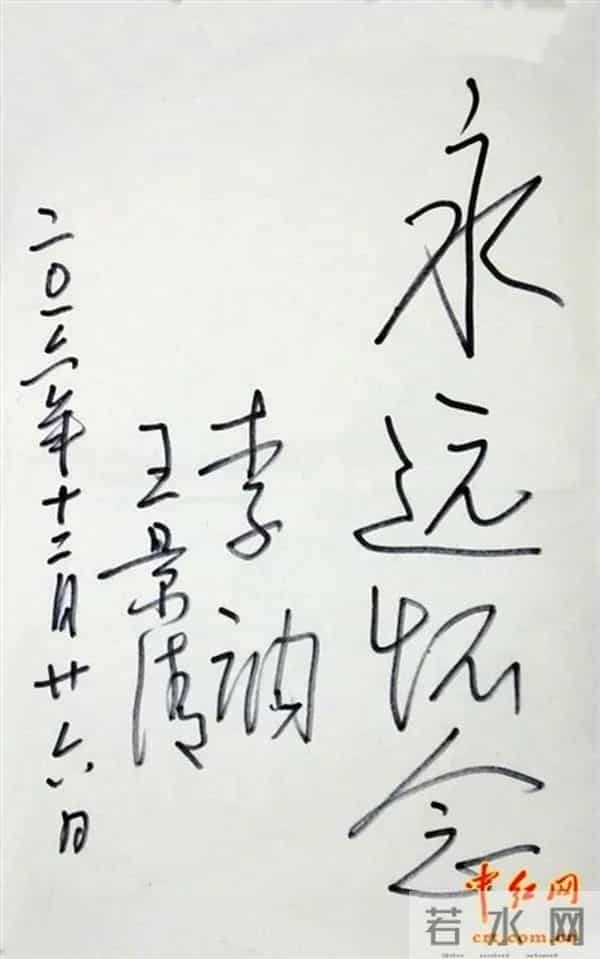 永远怀念
李讷
王景清
二〇一六年十二月廿六日
中红网
crt.com.cn
若水网